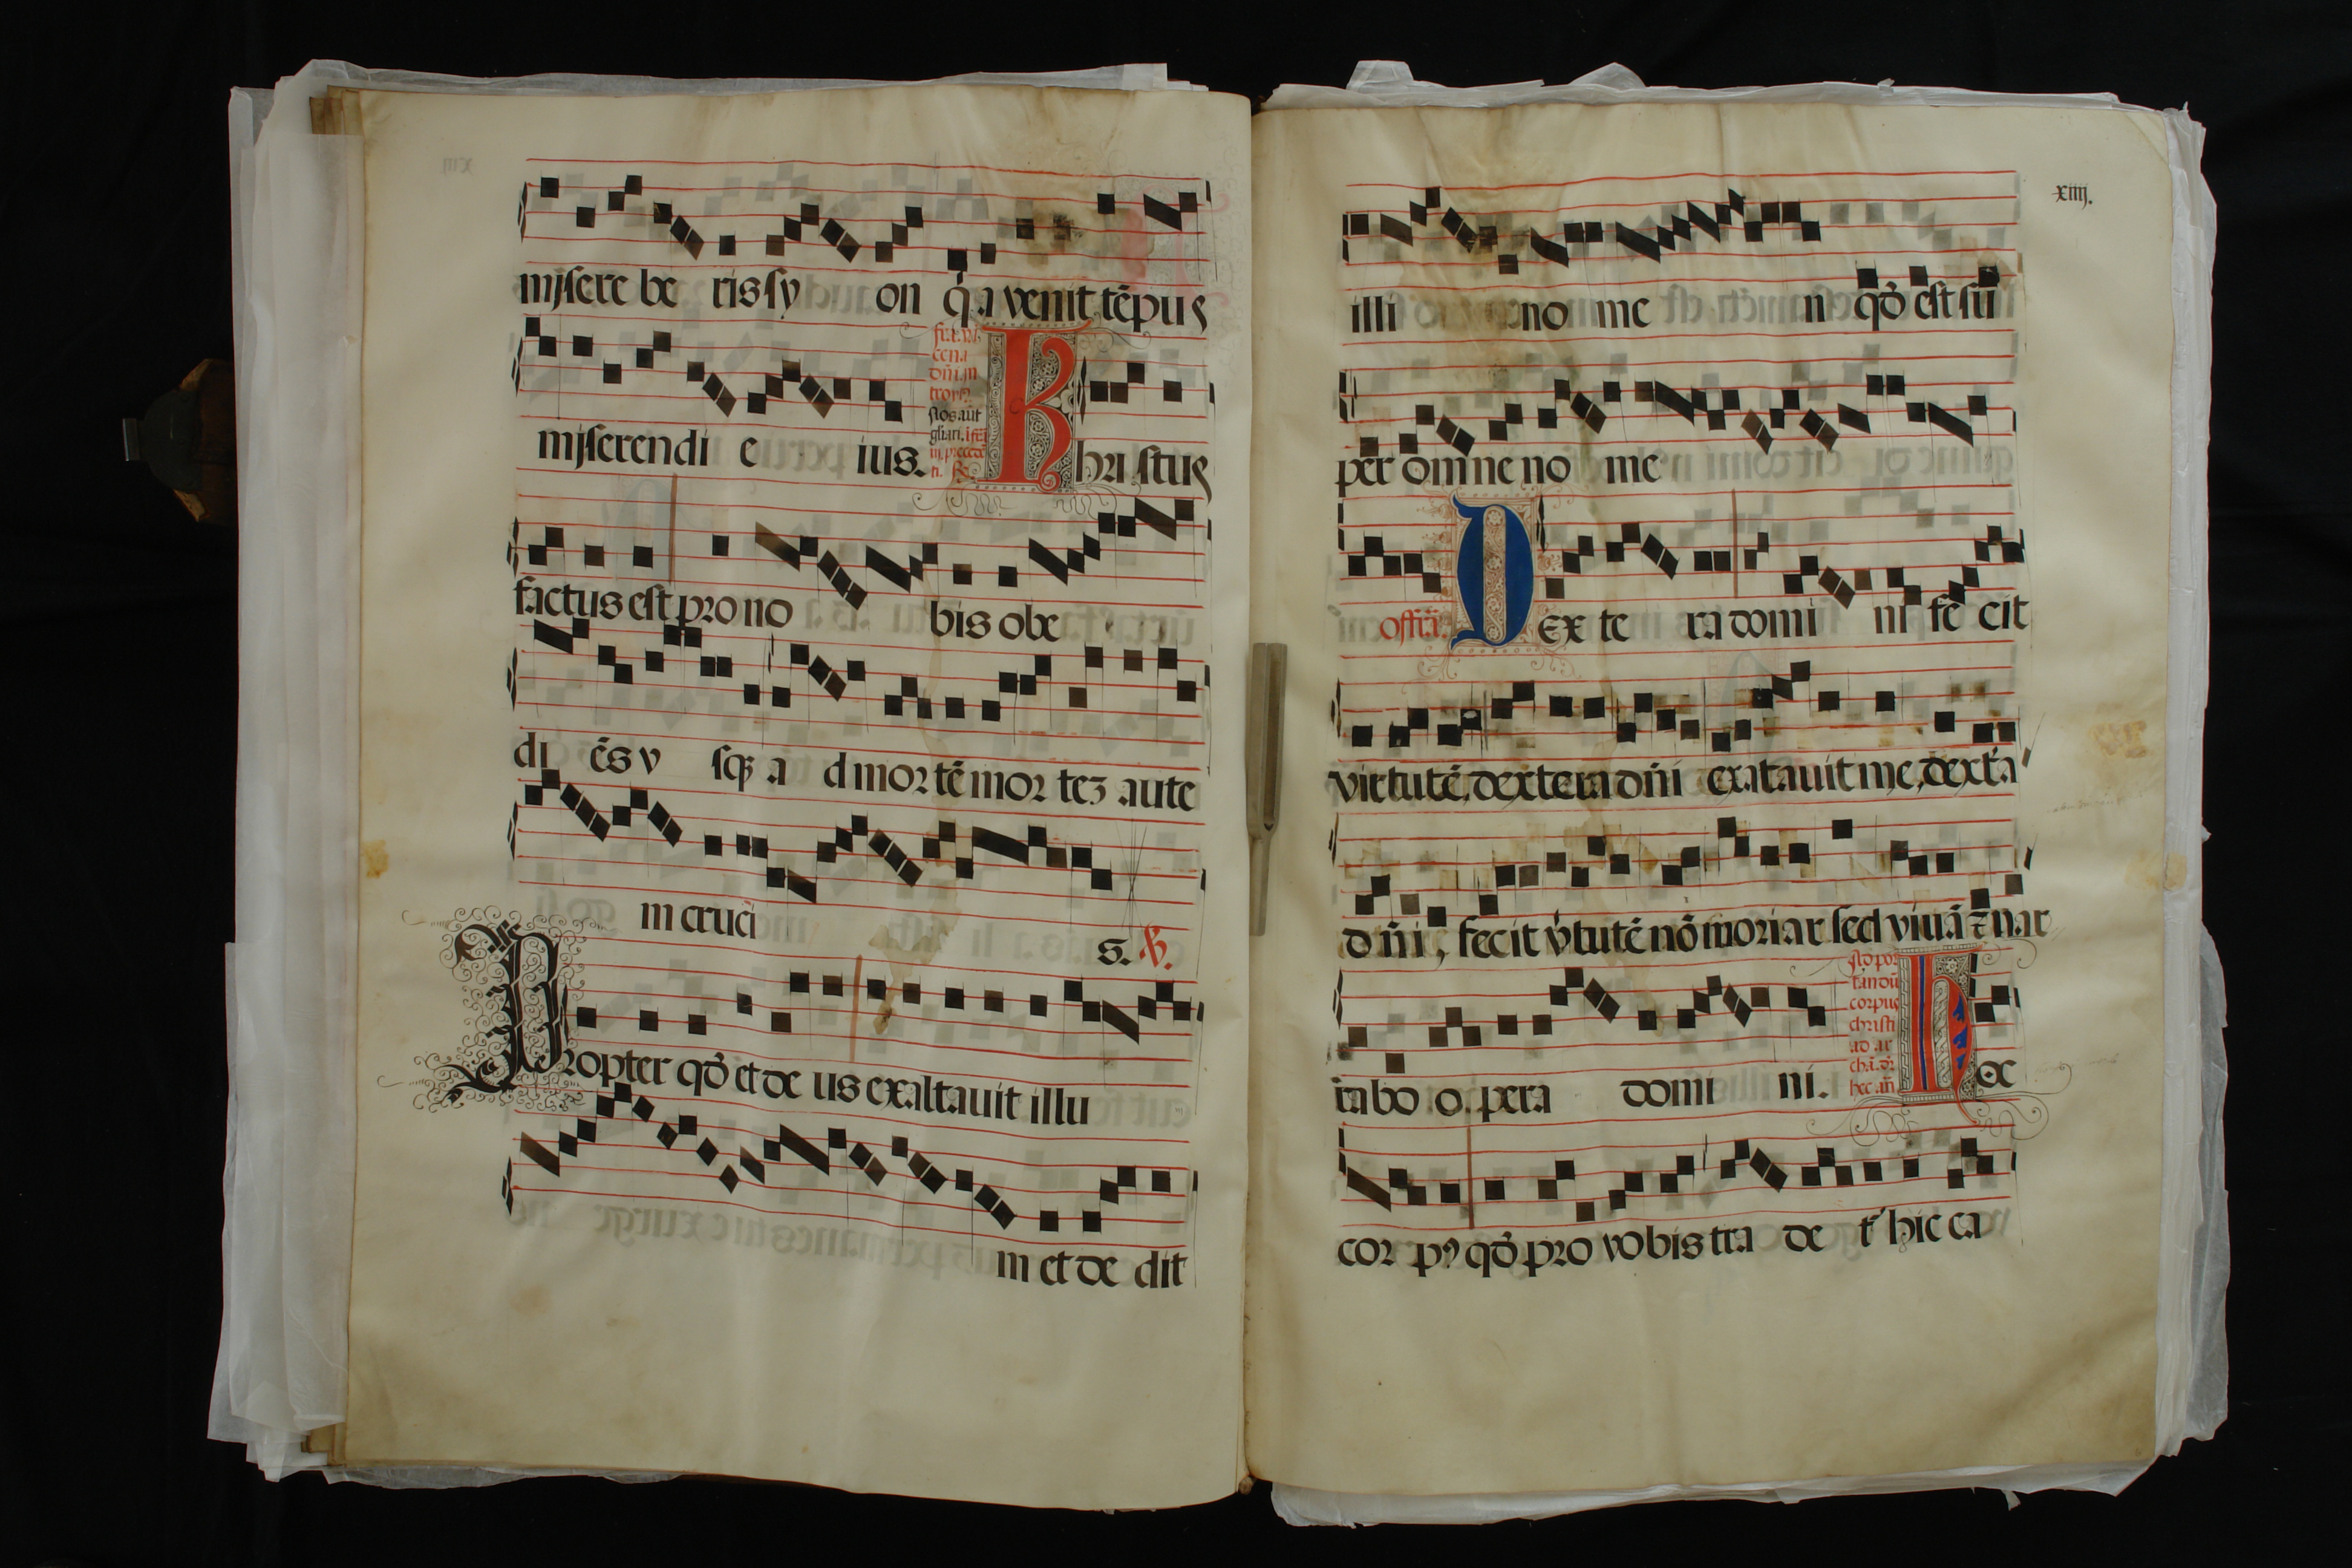 misere be ris sy on q̃a venit tẽpus
miserendi e ius.
cena
dñi. in
Khri stus
factus est pro no bis obe
di ẽs v sqz a d mor tẽ mor tez aute
m cruci
s. ℣.
Propter qď et de us exaltauit illu
m et de dit
xiiij.
illi no me n qď est sũ
per om ne no me
offã. Dex te ra domi ni fe cit
virtutẽ, dextera dñi exatauit me, dext̃a
dñi, fecit v̓tutẽ nõ moriar sed viuã ⁊ nar
rabo o pera domi ni.
corpus
christi
ad ar
hec añ
Hoc
cor pꝰ qď pro vobis tra de t̓ hic ca